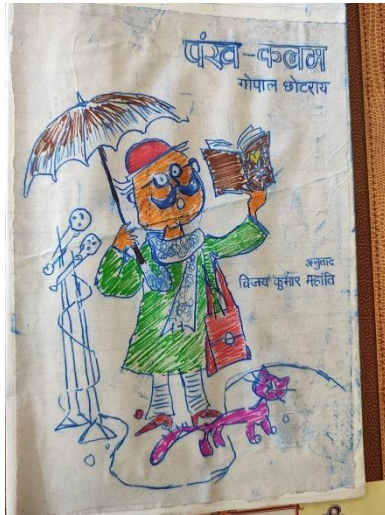 पंख-कलम
गोपाल छोटराय
अनुवाद
विजय कुमार महांति